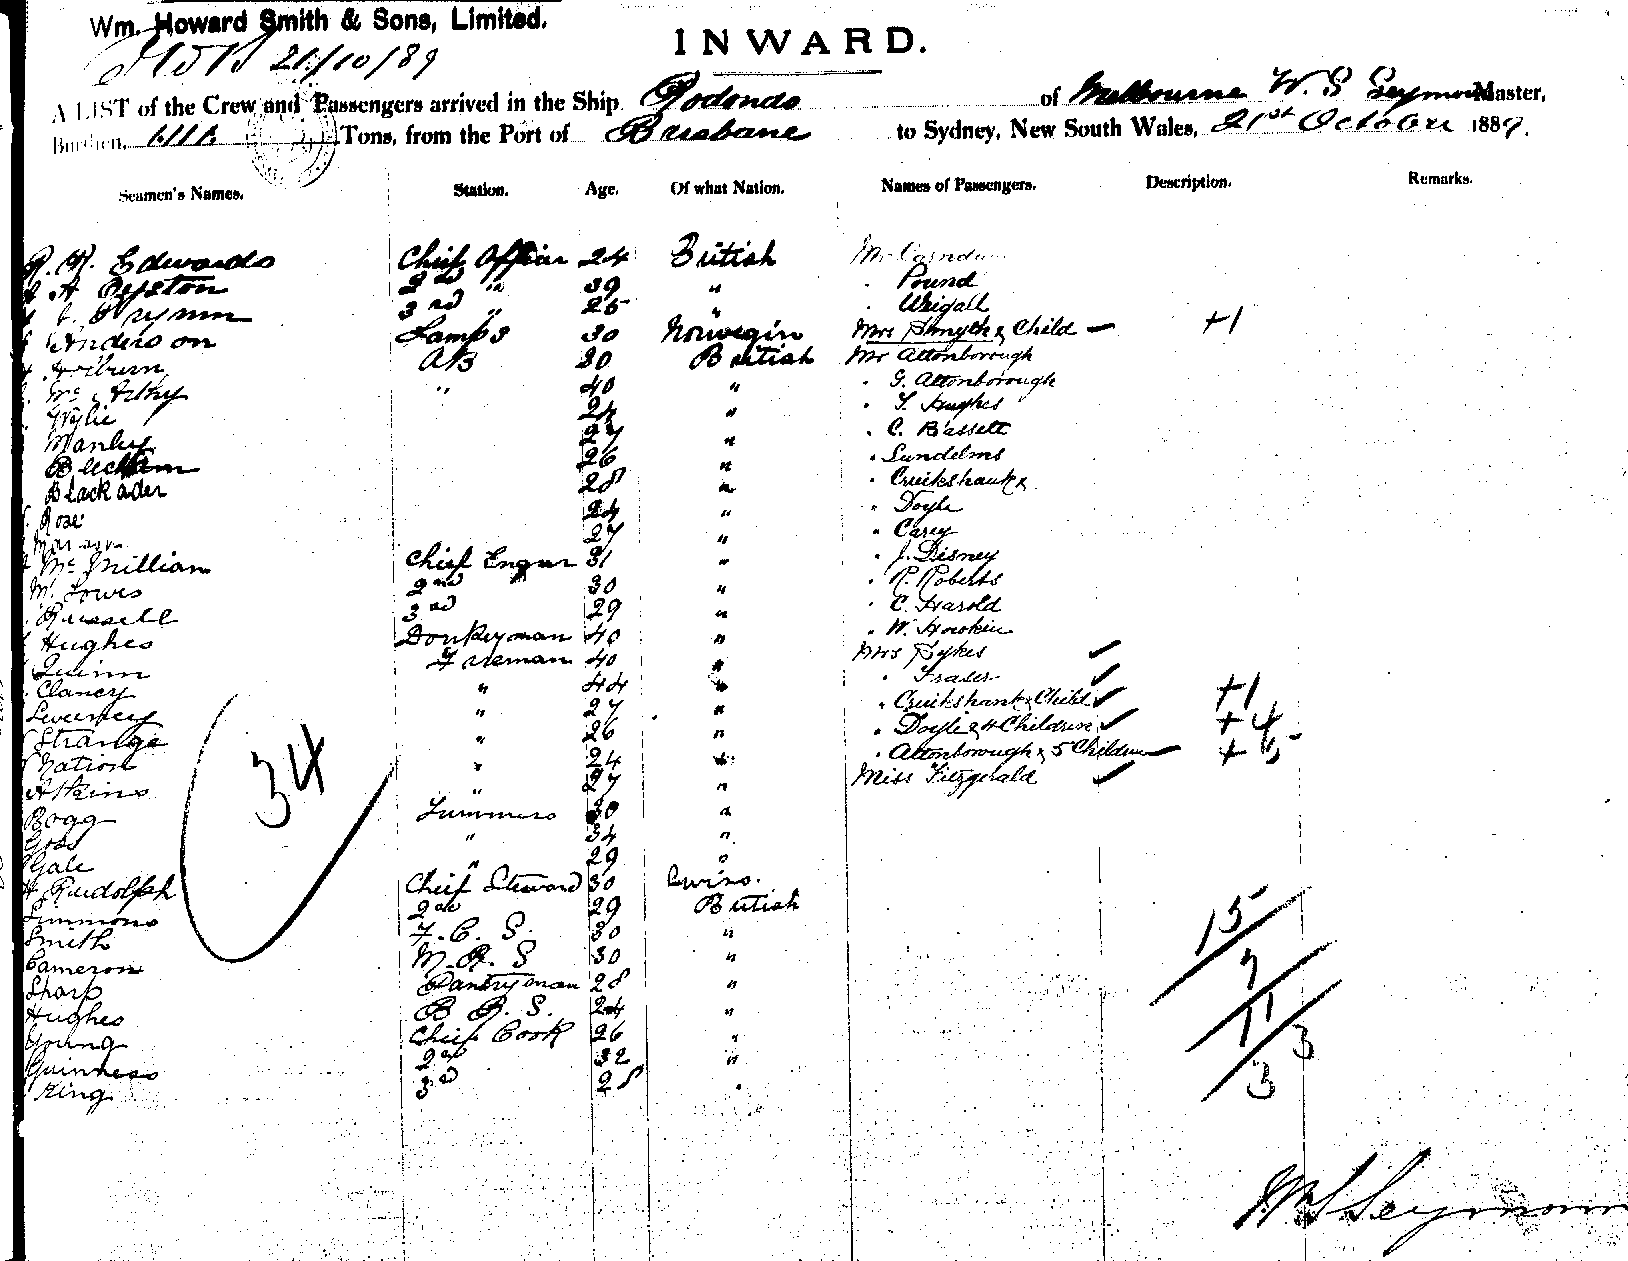 Wm. Howard Smith & Sons, Limited.
21/10/89
INWARD.
A LIST of the Crew and Passengers arrived in the Ship Rodondo of Melbourne W. S Seymour Master,
Burthen, Tons, from the Port of Brisbane to Sydney, New South Wales, 21st October 1889.
Seamen's Names. Station. Age. Of what Nation. Names of Passengers. Description. Remarks.
R. R. Edwards Chief Officer 24 British Mr
A 2nd " 39 " . Pound
3rd " 25 " . Weigall
Anderson Lamps 30 Norwegin Mrs Smyth & Child — +1
AB 30 British Mr Attonborough
" 40 " . G. Attonborough
Wylie 24 " . T. Hughes
Manley 27 " . C. Bassett
26 " . Sundelms
Blackader 28 " . Cruikshank
Rose 24 " . Doyle
27 " . Carey
McMillian Chief Enginr 31 " . J. Disney
Lowes 2nd 30 " . R. Roberts
Russell 3rd 29 " . C. Harold
Hughes Donkeyman 40 " . W. Howkin
Quinn Fireman 40 " Mrs Sykes ✓
Clancy " 44 " . Fraser ✓
Sweeney " 27 " . Cruikshank & Child ✓ +1
Strange " 26 " . Doyle & 4 Children ✓ +4
Nation " 24 " . Attonborough & 5 Children +5
Atkins " 27 " Miss Fitzgerald ✓
34
Bogg Trimmers 30 "
Goss " 34 "
Gale " 29 "
Rudolph Chief Steward 30 Swiss.
Simmons 2nd 29 British
Smith F. C. S. 30 "
Cameron M. R. S 30 "
Sharp Pantryman 28 "
Hughes B. R. S. 24 "
Young Chief Cook 26 "
Guinness 2nd 32 "
King 3rd 28 "
15
7
11
3
3
W S Seymour